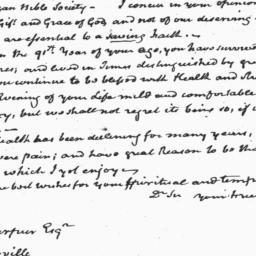 an Bible Society - I concur in your opinion
Gift and Grace of God and not of our deserving
are essential to a saving faith.
In the 91st Year of your age, you have survived
res; and lived in Times distinguished by gre
ou continue to be blessed with Health and
Evening of your Life mild and comfortable
ty, but we shall not regret its being so, if
Health has been declining for many years,
vere pain; and have great Reason to be tha
which I yet enjoy
e best wishes for your spiritual and temp
Dr Sir your
Esqr
ville